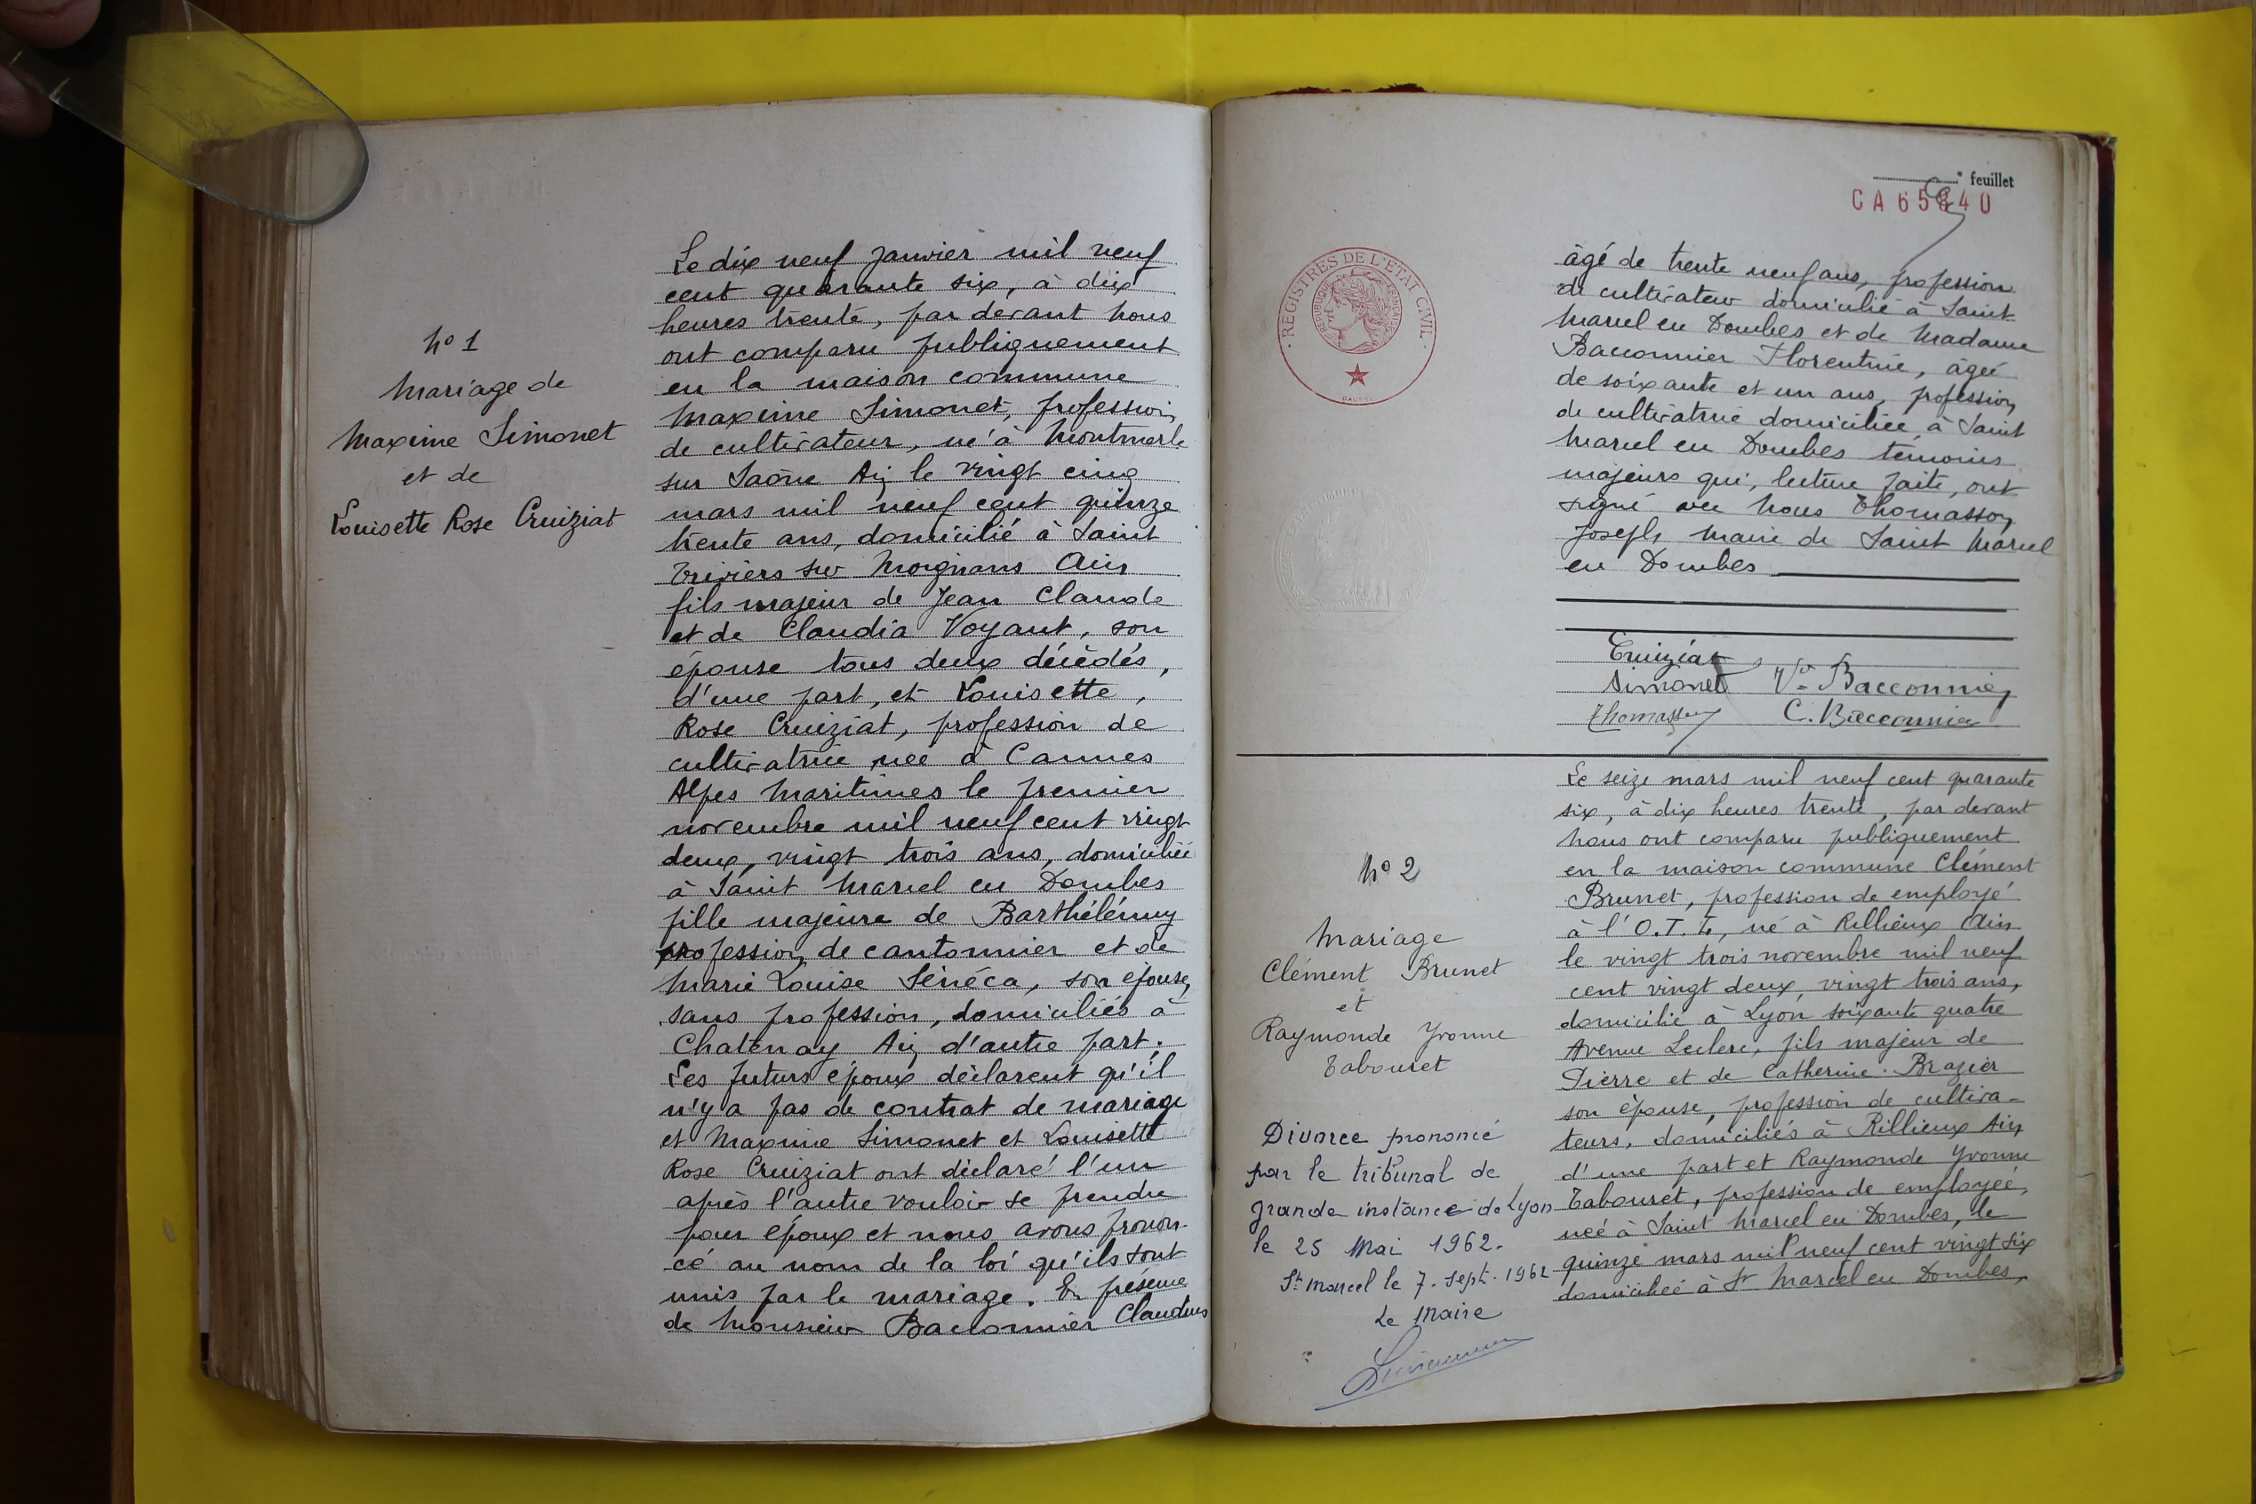 N° 1
Mariage de
Maxime Simonet
et de
Louisette Rose Cruiziat
Le dix neuf Janvier mil neuf
cent quarante six, à dix
heures trente, par devant nous
ont comparu publiquement
en la maison commune
Maxime Simonet, profession
de cultivateur, né à Montmerle
sur Saône Ain le vingt cinq
mars mil neuf cent quinze
trente ans, domicilié à Saint
Triviers sur Moignans Ain
fils majeur de Jean Claude
et de Claudia Voyant, son
épouse tous deux décédés,
d'une part, et Louisette,
Rose Cruiziat, profession de
cultivatrice née à Cannes
Alpes Maritimes le premier
novembre mil neuf cent vingt
deux, vingt trois ans, domiciliée
à Saint Marcel en Dombes
fille majeure de Barthélémy
profession de cantonnier et de
Marie Louise Sénéca, son épouse,
sans profession, domiciliés à
Chatenay Ain d'autre part.
Les futurs époux déclarent qu'il
n'y a pas de contrat de mariage
et Maxime Simonet et Louisette
Rose Cruiziat ont déclaré l'un
après l'autre vouloir se prendre
pour époux et nous avons pronon-
cé au nom de la loi qu'ils sont
unis par le mariage. En présence
de Monsieur Bacconnier Claudius
feuillet
CA 65840
REGISTRES DE L'ETAT CIVIL
âgé de trente neuf ans, profession
de cultivateur domicilié à Saint
Marcel en Dombes et de Madame
Bacconnier Florentine, âgée
de soixante et un ans, profession
de cultivatrice domiciliée à Saint
Marcel en Dombes témoins
majeurs qui, lecture faite, ont
signé avec nous Thomasson
Joseph, Maire de Saint Marcel
en Dombes
Cruiziat
Simonet Vve Bacconnier
Thomasson C. Bacconnier
N° 2
Mariage
Clément Brunet
et
Raymonde Yvonne
Tabouret
Divorce prononcé
par le tribunal de
grande instance de Lyon
le 25 Mai 1962.
St Marcel le 7. Sept. 1962
Le Maire
Le seize mars mil neuf cent quarante
six, à dix heures trente, par devant
nous ont comparu publiquement
en la maison commune Clément
Brunet, profession de employé
à l'O.T.L, né à Rillieux Ain
le vingt trois novembre mil neuf
cent vingt deux, vingt trois ans,
domicilié à Lyon, soixante quatre
Avenue Leclerc, fils majeur de
Pierre et de Catherine Brazier
son épouse, profession de cultiva-
teurs, domiciliés à Rillieux Ain
d'une part et Raymonde Yvonne
Tabouret, profession de employée,
née à Saint Marcel en Dombes, le
quinze mars mil neuf cent vingt six
domiciliée à St Marcel en Dombes,